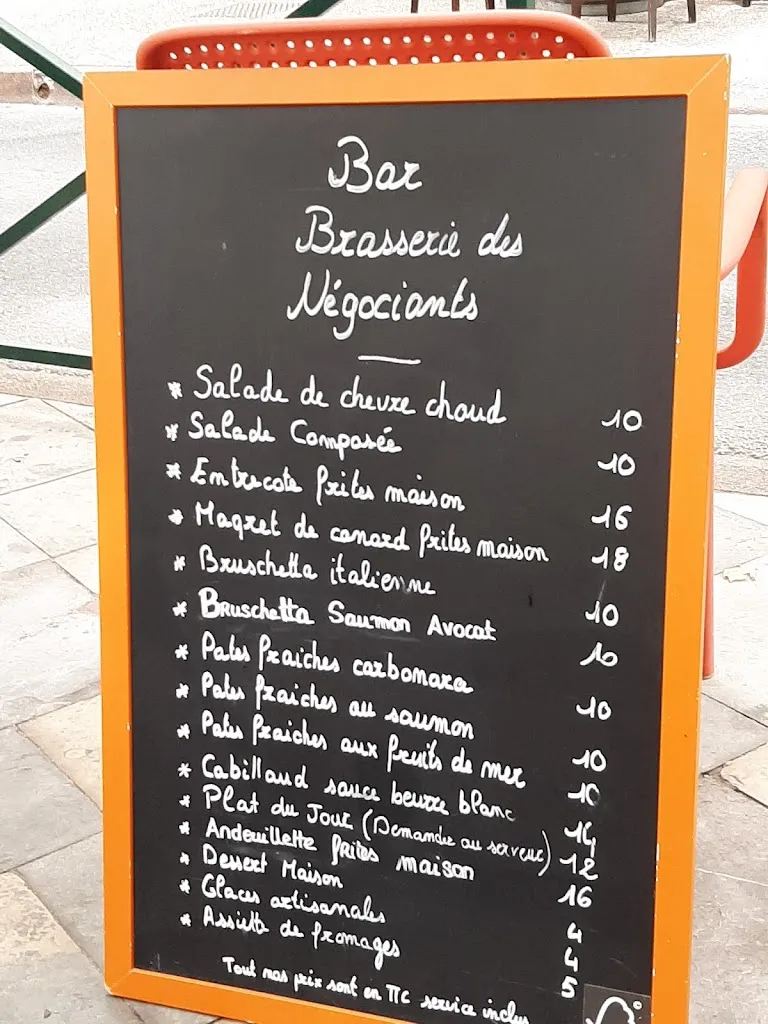 Bar
Brasserie des
Négociants
* Salade de chevre chaud 10
* Salade Composée 10
* Entrecote frites maison 16
* Magret de canard frites maison 18
* Bruschetta italienne 10
* Bruschetta Saumon Avocat 10
* Pates fraiches carbonara 10
* Pates fraiches au saumon 10
* Pates fraiches aux fruits de mer 10
* Cabillaud sauce beurre blanc 14
* Plat du Jour (Demandez au serveur) 12
* Andouillette frites maison 16
* Dessert Maison 4
* Glaces artisanales 4
* Assiette de fromages 5
Tout nos prix sont en TTC service inclus